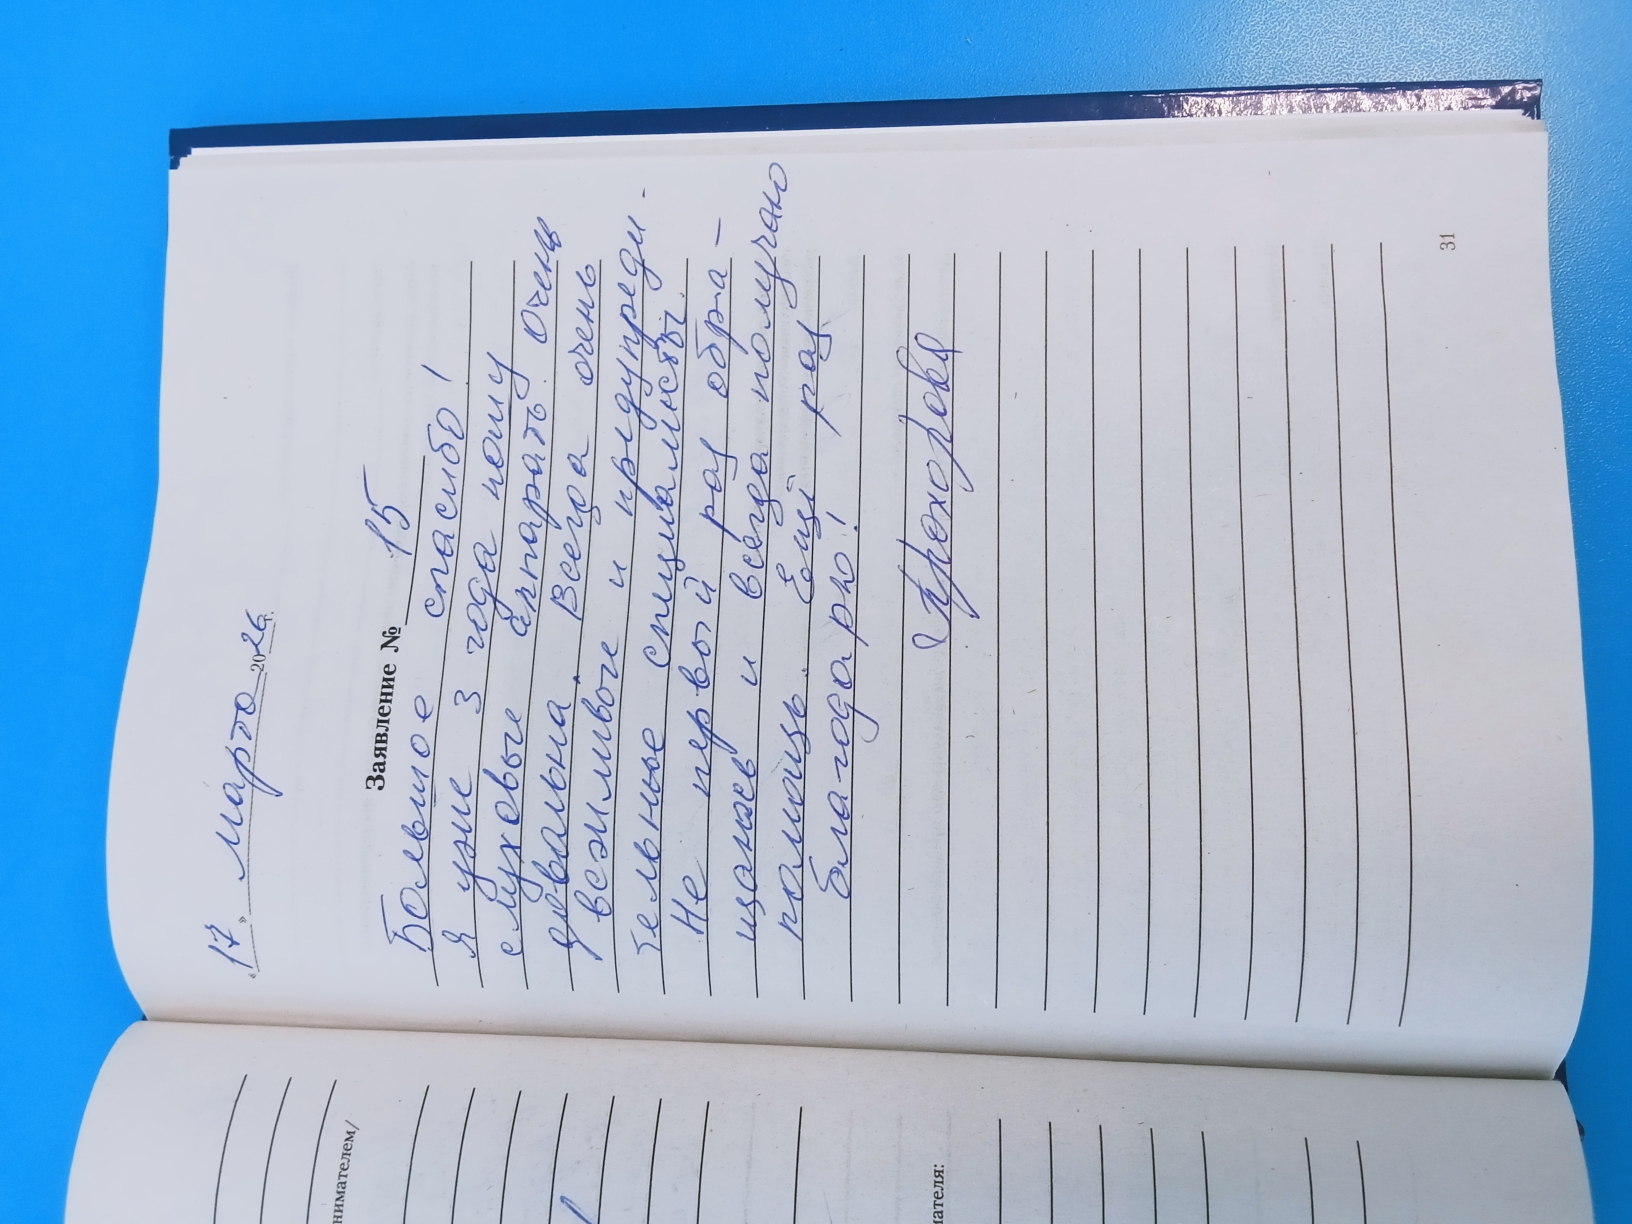 «17» марта 2026 г.
Заявление № 15
Большое спасибо!
Я уже 3 года ношу
слуховые аппараты. Очень
довольна. Всегда очень
вежливые и предупреди-
тельные специалисты.
Не первый раз обра-
щаюсь и всегда получаю
помощь. Ещё раз
благодарю!
Прохорова
31
нимателем/
ателя: